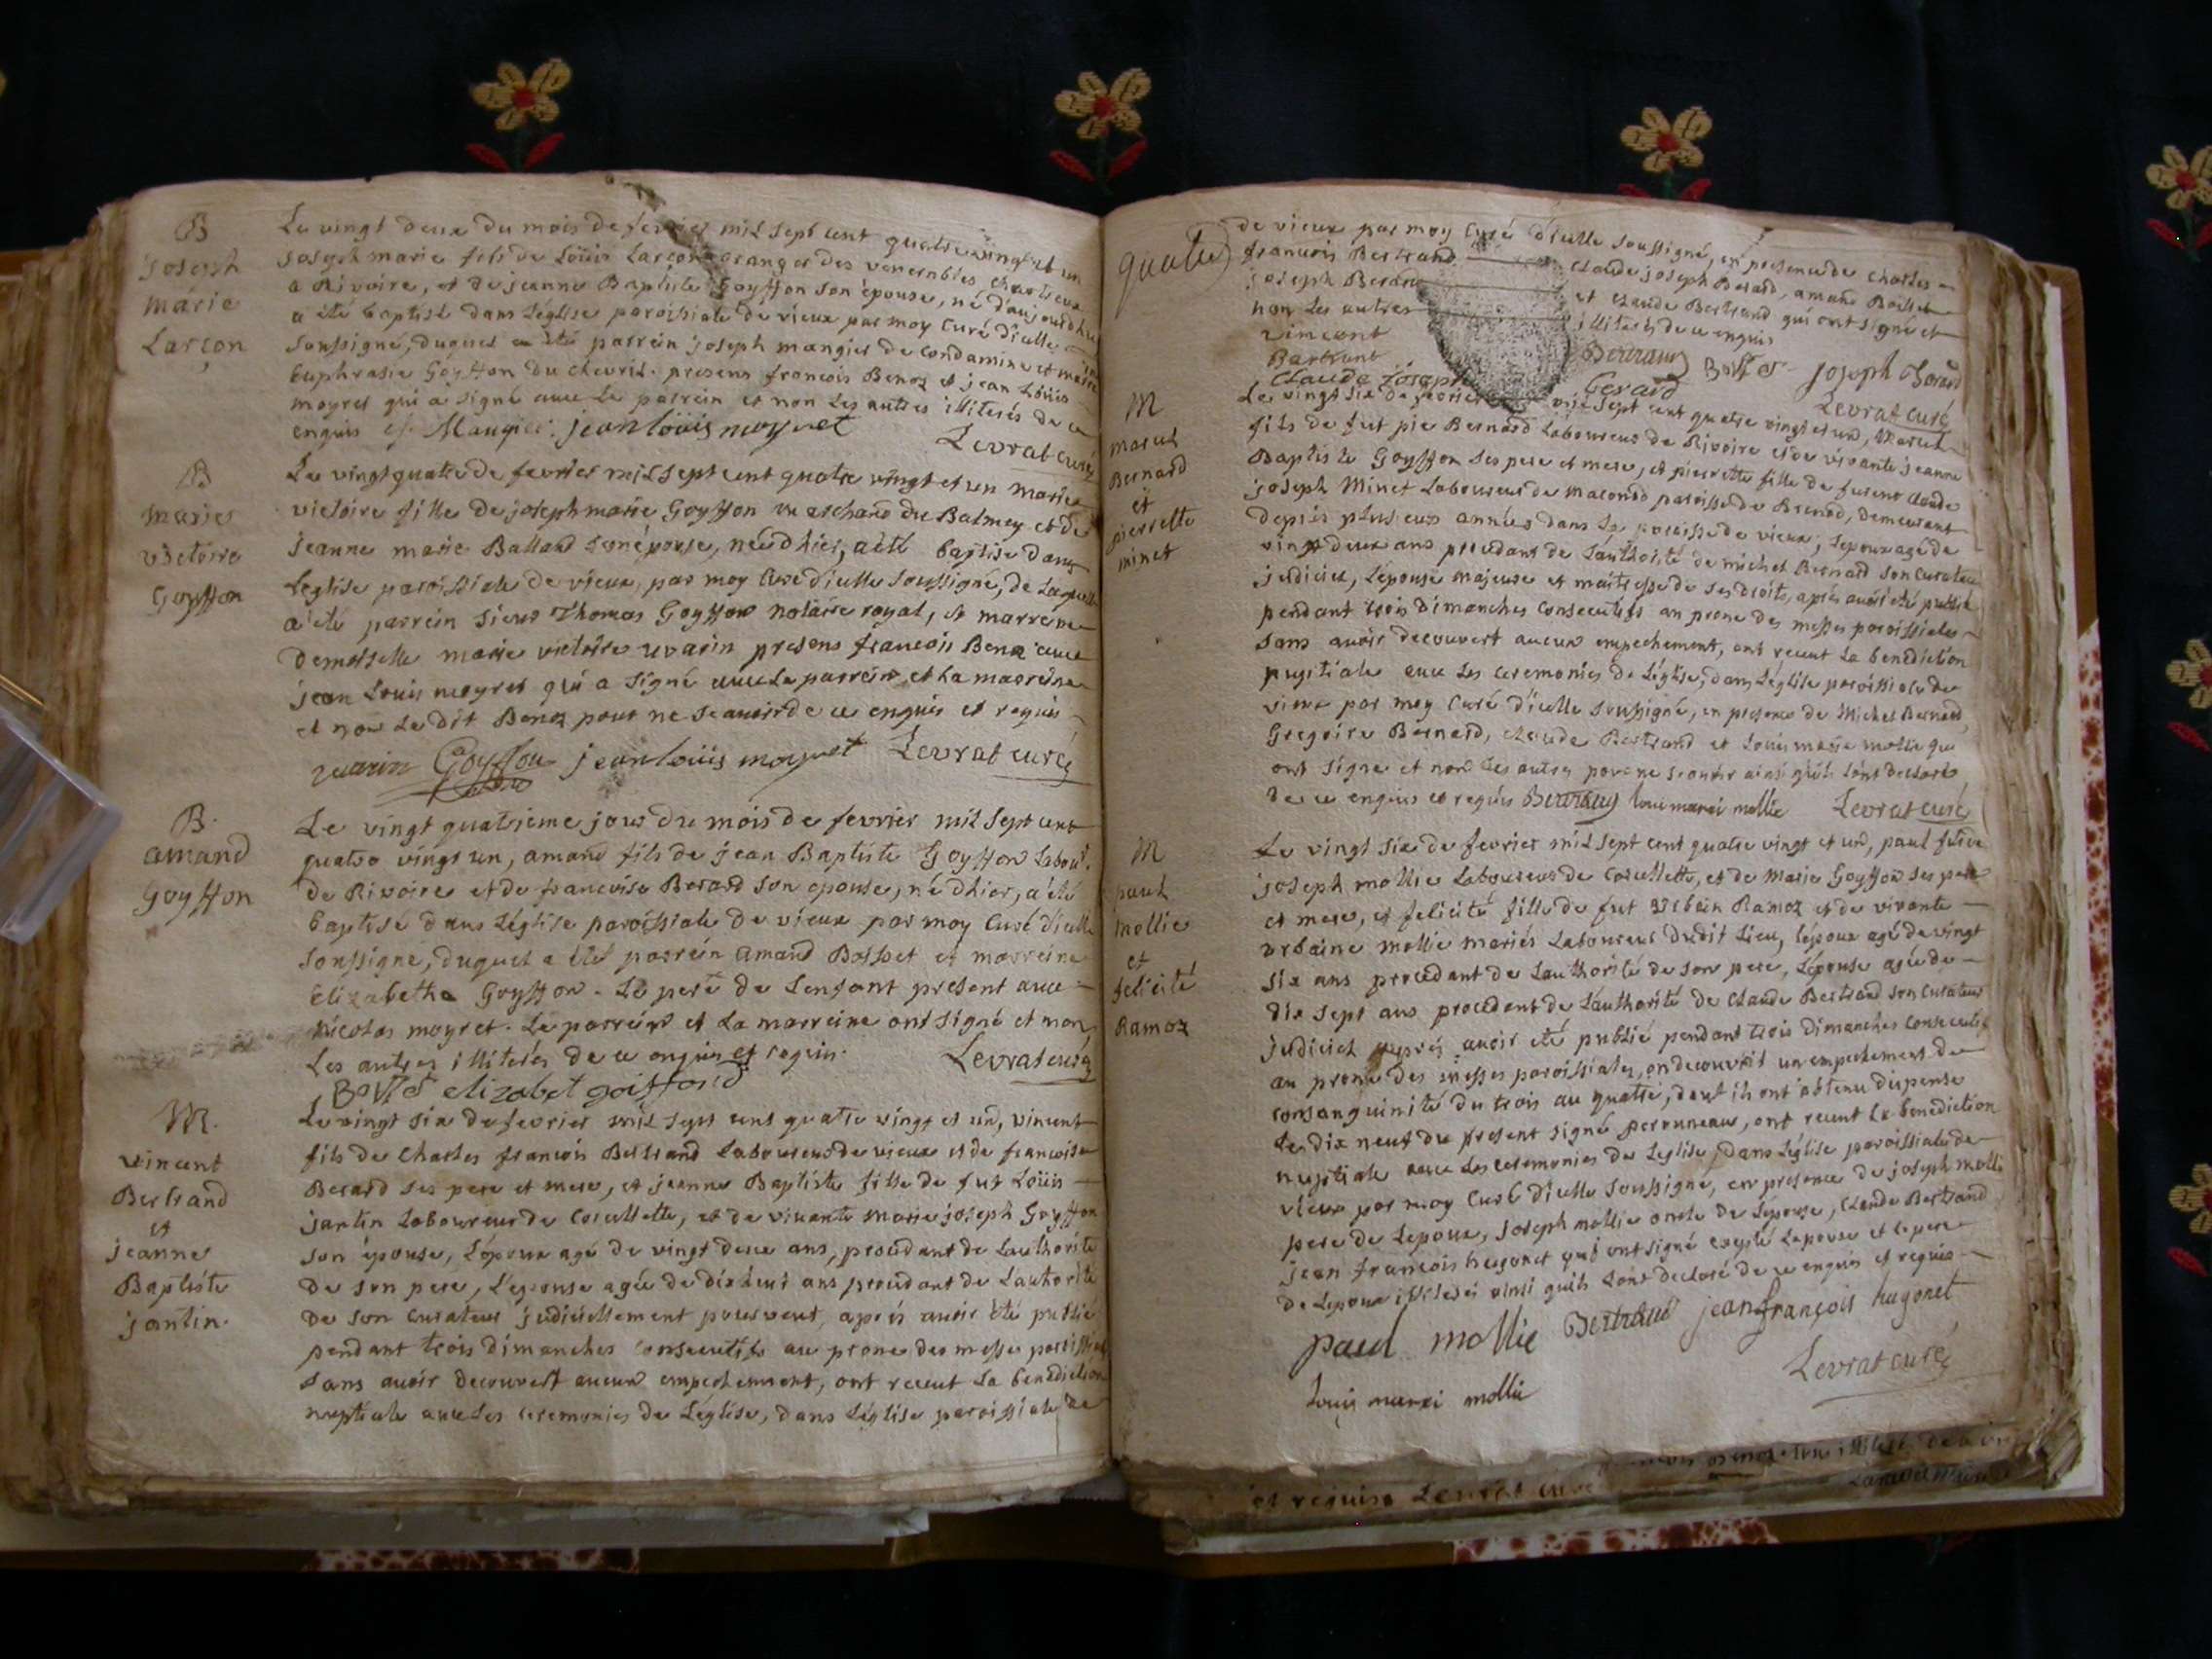 B
joseph
marie
Larçon
Le vingt deux du mois de fevrier mil sept cent quatre vingt et un
joseph marie fils de Loüis Larçon granger des venerables chartreux
a Rivoire, et de jeanne Baptiste Goyffon son épouse, né d'aujourdhuy
a été baptisé dans Léglise paroissiale de vieux par moy Curé d'icelle
soussigné, duquel a été parrein joseph mangier de condamine et
Euphrasie Goyffon du chevril. presens francois Benoz et jean Loüis
moyret qui a signé avec Le parrein et non Les autres illiterés de ce
enquis jean loüis moyret
Levrat curé
B
marie
victoire
Goyffon
Le vingt quatre de fevrier mil sept cent quatre vingt et un marie
victoire fille de joseph marie Goyffon marchand du Balmey et de
jeanne marie Balland son épouse, née d'hier, a été baptisé dans
Leglise paroissiale de vieux, par moy Curé d'icelle soussigné, de Laquelle
a été parrein sieur Thomas Goyffon notaire royal, et marreine
demoiselle marie victoire uvarin presens francois Benoz avec
jean Louis moyret qui a signé avec Le parrein, et La marreine
et non Le dit Benoz pour ne scavoir de ce enquis et requis
uvarin Goyffon jean loüis moyret Levrat curé
B.
amand
Goyffon
Le vingt quatrieme jour du mois de fevrier mil sept cent
quatre vingt un, amand fils de jean Baptiste Goyffon Labour.
de Rivoire et de francoise Berard son epouse, né d'hier, a été
baptisé dans Léglise paroissiale de vieux par moy Curé d'icelle
soussigné, duquel a été parrein amand Bosset et marreine
Elizabethe Goyffon. Le pere de Lenfant present avec
nicolas moyret. Le parrein et La marreine ont signé et non
Les autres illiterés de ce enquis et requis. Levrat curé
elizabet goiffond
M.
vincent
Bertrand
et
jeanne
Baptiste
jantin.
Le vingt six de fevrier mil sept cent quatre vingt et un, vincent
fils de Charles francois Bertrand Laboureur de vieux et de francoise
Berard ses pere et mere, et jeanne Baptiste fille de fut Loüis
jantin Laboureur de Corcellette, et de vivante marie joseph Goyffon
son épouse, Lépoux agé de vingt deux ans, procedant de Lauthorité
de son pere, L'epouse agée de dixhuit ans procedant de Lauthorité
de son curateur judiciellement pourveut, aprés avoir été publié
pendant trois dimanches consecutifs au prone des messes paroissiales
sans avoir decouvert aucun empechement, ont receut La benediction
nuptiale avec Les ceremonies de Léglise, dans Léglise paroissiale de
quatre
de vieux par moy Curé d'icelle soussigné, en presence de Charles
francois Bertrand claude joseph Berard, amand Bosset
joseph Berard et claude Bertrand qui ont signé et
non Les autres illiterés de ce enquis
vincent
Bertrant Bertrand joseph Berard
Claude joseph Berard Levrat curé
M
marcel
Bernard
et
pierrette
minet
Le vingt six de fevrier mil sept cent quatre vingt et un, marcel
fils de fut pie Bernard Laboureur de Rivoire et de vivante jeanne
Baptiste Goyffon ses pere et mere, et pierrette fille de furent claude
joseph Minet Laboureur de maconod paroisse de Brenod, demeurant
depuis plusieurs années dans La paroisse de vieux, Lepoux agé de
vingt deux ans procedant de Lauthorité de michel Bernard son curateur
judiciel, Lépouse majeure et maitresse de ses droits, aprés avoir été publié
pendant trois dimanches consecutifs au prone des messes paroissiales
sans avoir decouvert aucun empechement, ont receut La benediction
nuptiale avec Les ceremonies de Léglise, dans Léglise paroissiale de
vieux par moy Curé d'icelle soussigné, en presence de Michel Bernard,
Gregoire Bernard, claude Bertrand et Loüis marie mollie qui
ont signé et non Les autres pour ne scavoir ainsi qu'ils Lont declaré
de ce enquis et requis Bertrand loui marei mollie Levrat curé
M
paul
mollie
et
felicité
Ramoz
Le vingt six de fevrier mil sept cent quatre vingt et un, paul fils de
joseph mollie Laboureur de Corcellette, et de marie Goyffon ses pere
et mere, et felicité fille de fut urbain Ramoz et de vivante
urbaine mollie mariés Laboureur dudit Lieu, Lépoux agé de vingt
six ans procedant de Lauthorité de son pere, Lépouse agée de
dix sept ans procedant de Lauthorité de Claude Bertrand son curateur
judiciel aprés avoir été publié pendant trois dimanches consecutifs
au prone des messes paroissiales, on decouvrit un empechement de
consanguinité du trois au quatre, dont ils ont obtenu dispense
Le dix neuf du present signé perruneaux, ont receut La benediction
nuptiale avec Les ceremonies de Leglise, dans Léglise paroissiale de
vieux par moy Curé d'icelle soussigné, en presence de joseph mollie
pere de Lepoux, joseph mollie oncle de Lépouse, Claude Bertrand
jean francois hugonet qui ont signé excepté Lepouse et Le pere
de Lepoux illiterés ainsi quils Lont declaré de ce enquis et requis
paul mollie Bertrand jean françois hugonet
Levrat curé
loüis marei mollie
et requis Levrat curé